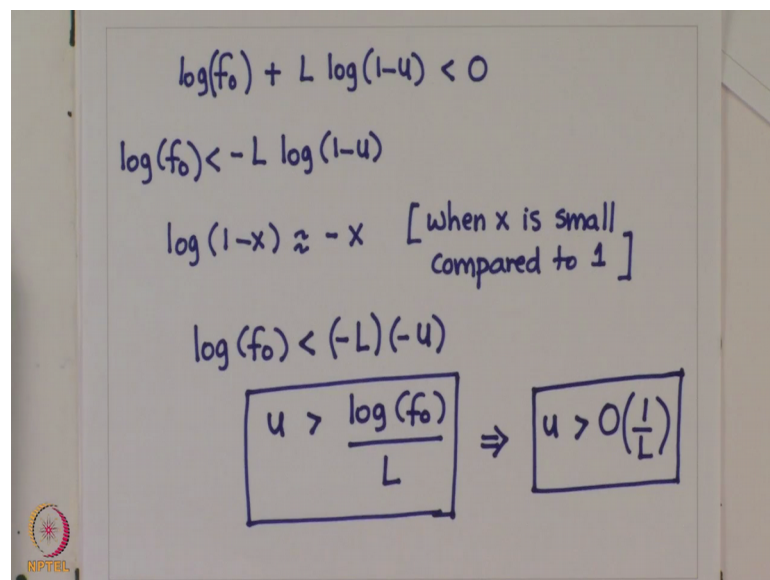 log(f₀) + L log(1-u) < 0
log(f₀) < -L log(1-u)
log(1-x) ≈ -x [when x is small
compared to 1]
log(f₀) < (-L)(-u)
u > log(f₀)/L ⇒ u > O(1/L)
NPTEL